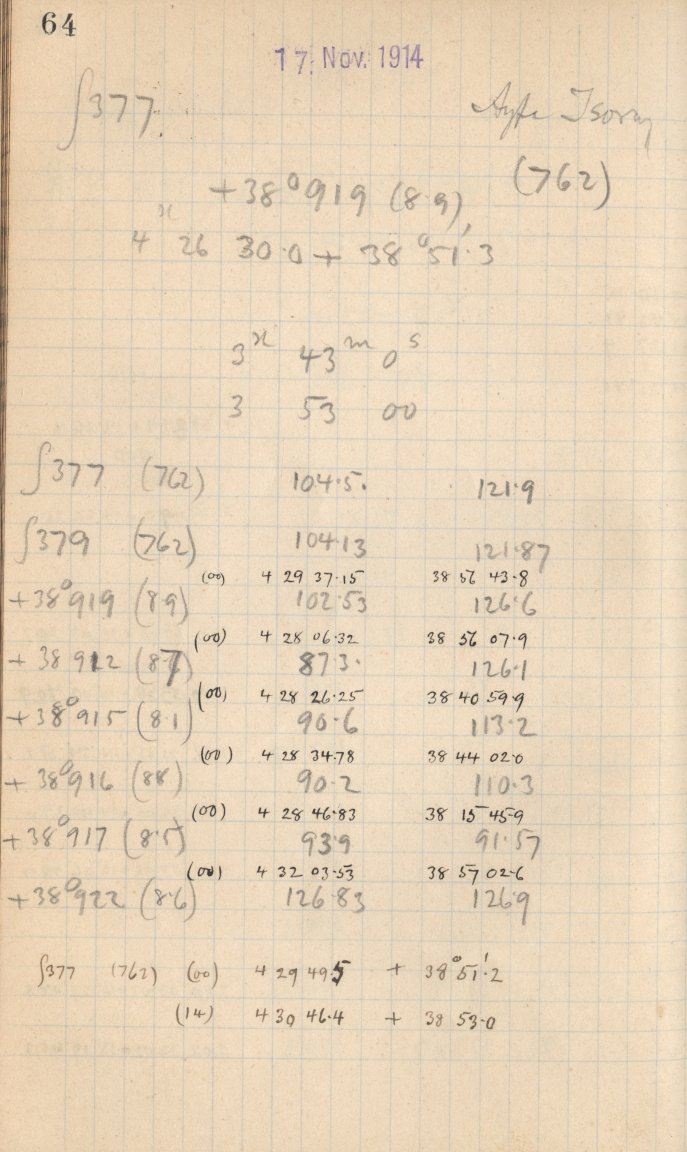 64
17 Nov. 1914
∫377.
(762)
+38°919 (8.9)
4ʰ 26 30.0 + 38°51'.3
3ʰ 43ᵐ 0ˢ
3 53 00
∫377 (762) 104.5. 121.9
∫379 (762) 104.13 121.87
(00) 4 29 37.15 38 56 43.8
+38°919 (8.9) 102.53 126.6
(00) 4 28 06.32 38 56 07.9
+38 912 (8.7) 87.3. 126.1
(00) 4 28 26.25 38 40 59.9
+38°915 (8.1) 90.6 113.2
(00) 4 28 34.78 38 44 02.0
+38°916 (8.8) 90.2 110.3
(00) 4 28 46.83 38 15 45.9
+38°917 (8.5) 93.9 91.57
(00) 4 32 03.53 38 57 02.6
+38°922 (8.6) 126.83 126.9
∫377 (762) (00) 4 29 49.5 + 38°51'.2
(14) 4 30 46.4 + 38 53.0